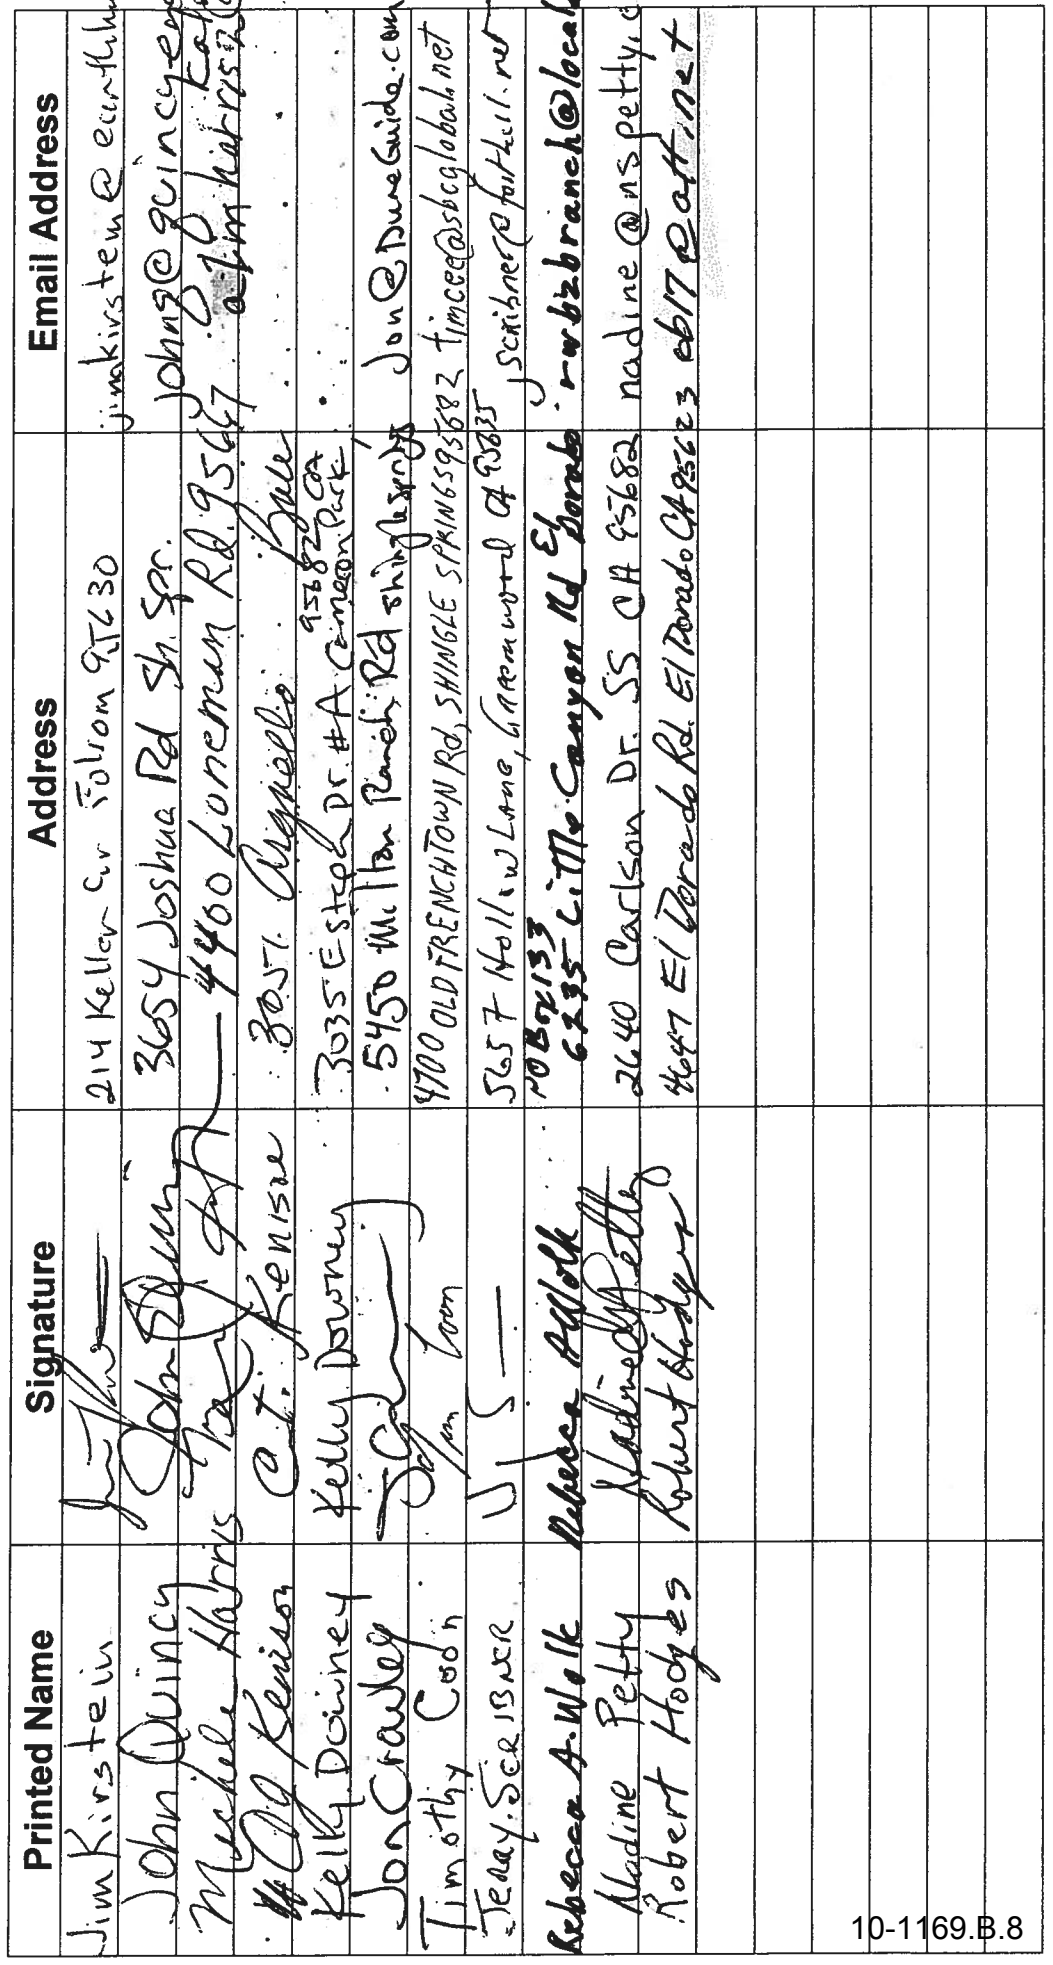 Printed Name Signature Address Email Address
Jim Kirstein 214 Keller Cir Folsom 95630 jimkirstein@earthli
John Quincy John Quincy 3654 Joshua Rd Sh. Spr. john@quincyen
Michele Harris 4400 Loneman Rd. 95667 harris
Kenison C. J. Kenison 3051 Arguello
Kelly Downey Kelly Downey 3035 Estepa Dr. #A Cameron Park 95682 CA
Jon Crawley 5450 Milton Ranch Rd Shingle Springs Jon@DuneGuide.com
Timothy Coon 4700 OLD FRENCHTOWN Rd, SHINGLE SPRINGS 95682 timcee@sbcglobal.net
Jerry Scribner 5657 Hollow Lane, Greenwood CA 95635 jscribner@foothill.net
Rebecca A. Wolk Rebecca A Wolk PO Box 133 6235 Little Canyon Rd El Dorado rwbzbranch@local
Nadine Petty Nadine Petty 2640 Carlson Dr. SS CA 95682 nadine@nspetty.c
Robert Hodges Robert Hodges 4647 El Dorado Rd. El Dorado CA 95623 eb17@att.net
10-1169.B.8